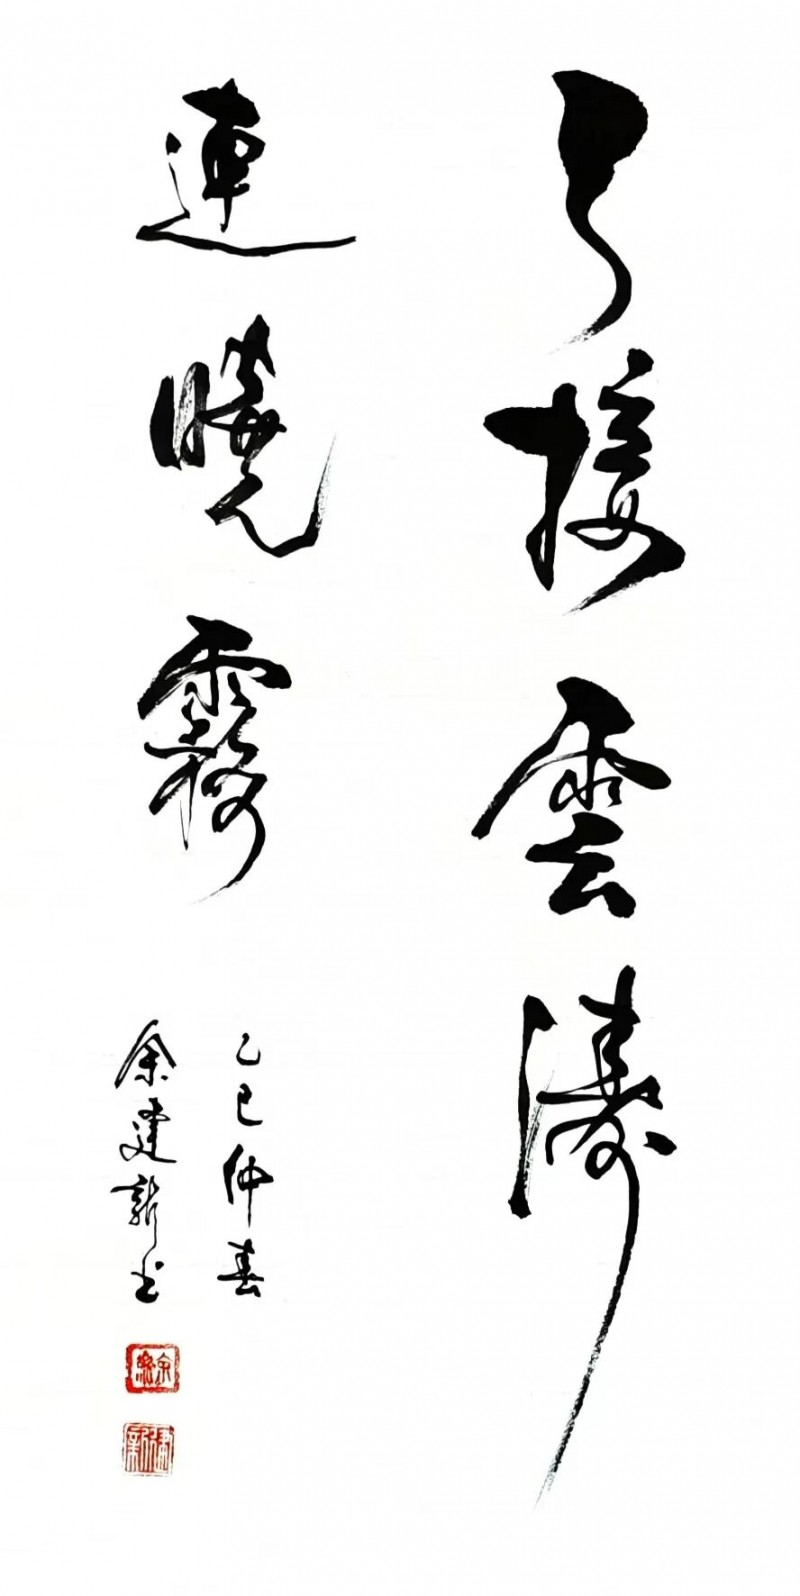 天接雲濤
連曉霧
乙巳仲春
余建新书
建新